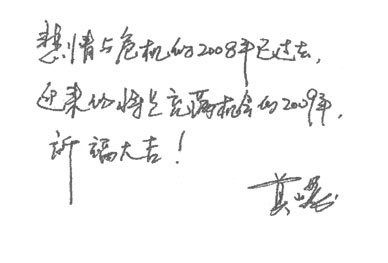 悲情与危机的2008年已过去,
迎来的将是充满机会的2009年,
祈福大吉!